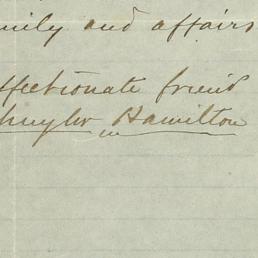 mily and affairs
ffectionate friend
chuyler Hamilton